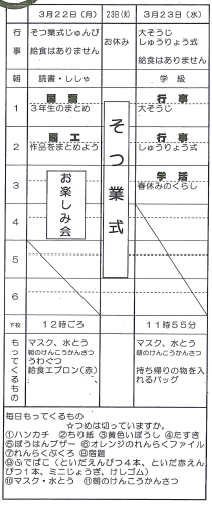 3月22日(月) 23日(火) 3月23日(水)
行事
そつ業式じゅんび
給食はありません
お休み
大そうじ
しゅうりょう式
給食はありません
朝 読書・ししゃ 学級
1 国語
3年生のまとめ
行事
大そうじ
2 図工
作品をまとめよう
行事
しゅうりょう式
3 お楽しみ会
そつ業式
学活
春休みのくらし
4
5
6
下校 12時ごろ 11時55分
もってくるもの
マスク、水とう
朝のけんこうかんさつ
うわぐつ
給食エプロン(赤)
マスク、水とう
朝のけんこうかんさつ
持ち帰りの物を入
れるバッグ
毎日もってくるもの
☆つめは切っていますか。
①ハンカチ ②ちり紙 ③黄色いぼうし ④たすき
⑤ぼうはんブザー ⑥オレンジのれんらくファイル
⑦れんらくぶくろ ⑧宿題
⑨ふでばこ(といだえんぴつ4本、といだ赤えん
ぴつ1本、ミニじょうぎ、けしゴム)
⑩マスク・水とう ⑪朝のけんこうかんさつ